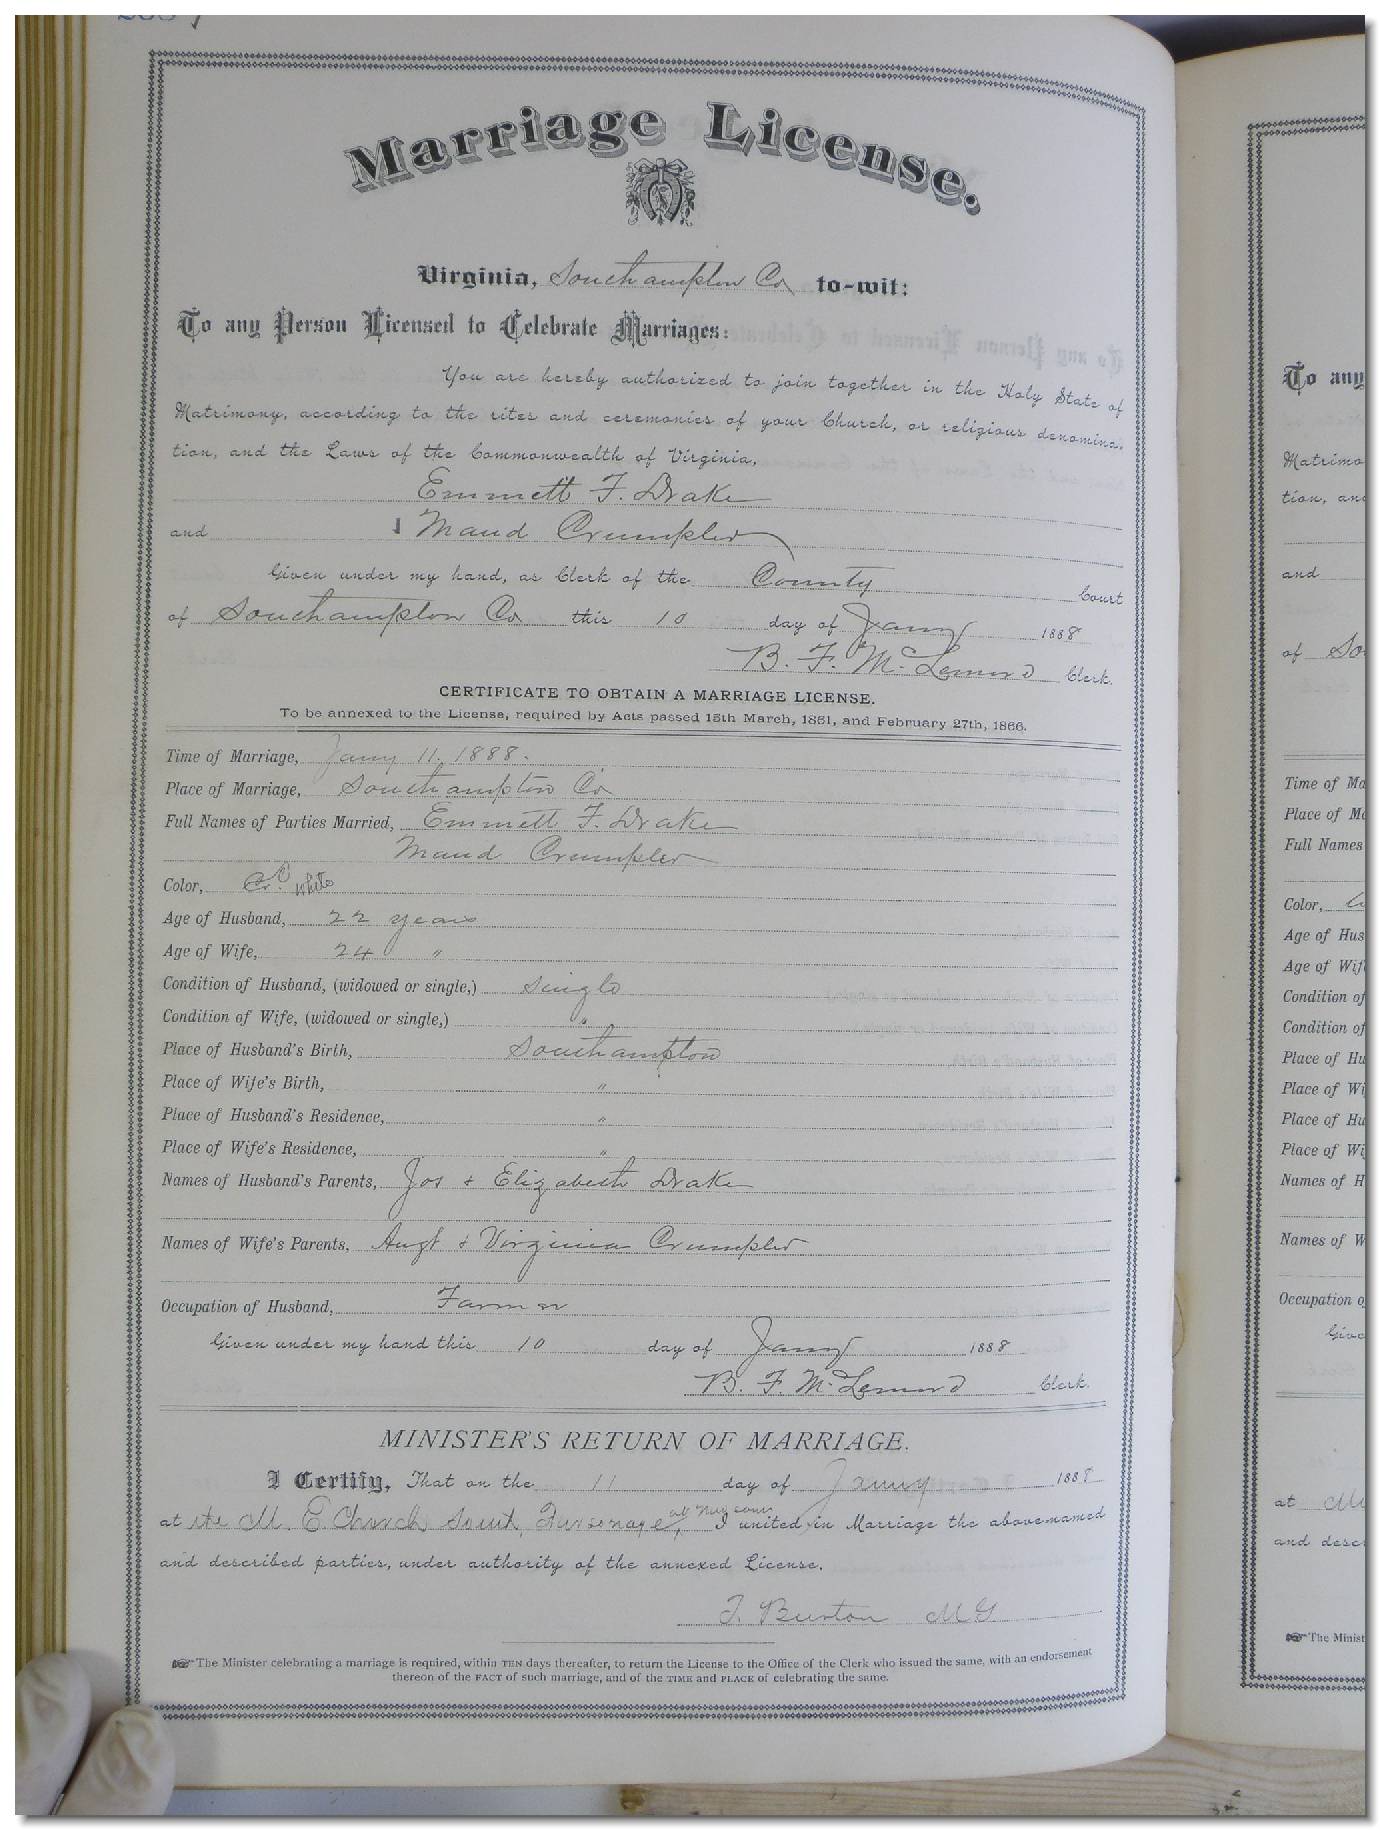 Marriage License.
Virginia, Southampton Co to-wit:
To any Person Licensed to Celebrate Marriages:
You are hereby authorized to join together in the Holy State of
Matrimony, according to the rites and ceremonies of your Church, or religious denomina-
tion, and the Laws of the Commonwealth of Virginia,
Emmett F. Drake
and Maud Crumpler
Given under my hand, as Clerk of the County Court
of Southampton Co this 10 day of Jany 1888
B. F. McLemore Clerk.
CERTIFICATE TO OBTAIN A MARRIAGE LICENSE.
To be annexed to the License, required by Acts passed 15th March, 1861, and February 27th, 1866.
Time of Marriage, Jany 11, 1888.
Place of Marriage, Southampton Co
Full Names of Parties Married, Emmett F. Drake
Maud Crumpler
Color, White
Age of Husband, 22 years
Age of Wife, 24 "
Condition of Husband, (widowed or single,) Single
Condition of Wife, (widowed or single,) "
Place of Husband's Birth, Southampton
Place of Wife's Birth, "
Place of Husband's Residence, "
Place of Wife's Residence, "
Names of Husband's Parents, Jos & Elizabeth Drake
Names of Wife's Parents, Augt & Virginia Crumpler
Occupation of Husband, Farmer
Given under my hand this 10 day of Jany 1888
B. F. McLemore Clerk.
MINISTER'S RETURN OF MARRIAGE.
I Certify, That on the 11 day of Janny 1888
at the M. E Church South, Parsonage, at I united in Marriage the above-named
and described parties, under authority of the annexed License.
J. Burton MG
The Minister celebrating a marriage is required, within TEN days thereafter, to return the License to the Office of the Clerk who issued the same, with an endorsement
thereon of the FACT of such marriage, and of the TIME and PLACE of celebrating the same.
To any
Matrimo
tion, an
and
of So
Time of Ma
Place of Ma
Full Names
Color,
Age of Hus
Age of Wif
Condition of
Condition of
Place of Hu
Place of Wi
Place of Hu
Place of Wi
Names of H
Names of W
Occupation o
Give
at
and desc
The Minist